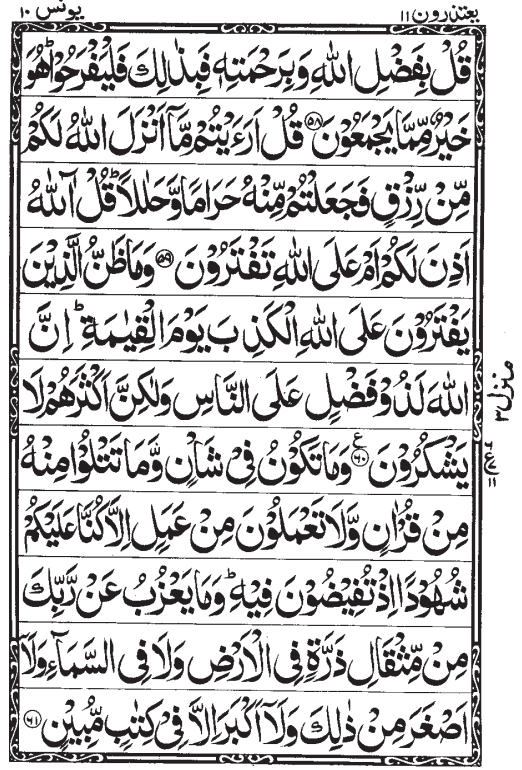 يعتذرون ١١
يونس ١٠
قُلْ بِفَضْلِ اللهِ وَبِرَحْمَتِهٖ فَبِذٰلِكَ فَلْيَفْرَحُوْا ؕ هُوَ
خَيْرٌ مِّمَّا يَجْمَعُوْنَ ﴿۵۸﴾ قُلْ اَرَءَيْتُمْ مَّاۤ اَنْزَلَ اللهُ لَكُمْ
مِّنْ رِّزْقٍ فَجَعَلْتُمْ مِّنْهُ حَرَامًا وَّحَلٰلًا ؕ قُلْ آٰللهُ
اَذِنَ لَكُمْ اَمْ عَلَى اللهِ تَفْتَرُوْنَ ﴿۵۹﴾ وَمَا ظَنُّ الَّذِيْنَ
يَفْتَرُوْنَ عَلَى اللهِ الْكَذِبَ يَوْمَ الْقِيٰمَةِ ؕ اِنَّ
اللهَ لَذُوْ فَضْلٍ عَلَى النَّاسِ وَلٰكِنَّ اَكْثَرَهُمْ لَا
يَشْكُرُوْنَ ﴿۶۰﴾ ع وَمَا تَكُوْنُ فِيْ شَاْنٍ وَّمَا تَتْلُوْا مِنْهُ
مِنْ قُرْاٰنٍ وَّلَا تَعْمَلُوْنَ مِنْ عَمَلٍ اِلَّا كُنَّا عَلَيْكُمْ
شُهُوْدًا اِذْ تُفِيْضُوْنَ فِيْهِ ؕ وَمَا يَعْزُبُ عَنْ رَّبِّكَ
مِنْ مِّثْقَالِ ذَرَّةٍ فِي الْاَرْضِ وَلَا فِي السَّمَآءِ وَلَاۤ
اَصْغَرَ مِنْ ذٰلِكَ وَلَاۤ اَكْبَرَ اِلَّا فِيْ كِتٰبٍ مُّبِيْنٍ ﴿۶۱﴾
منزل ٣